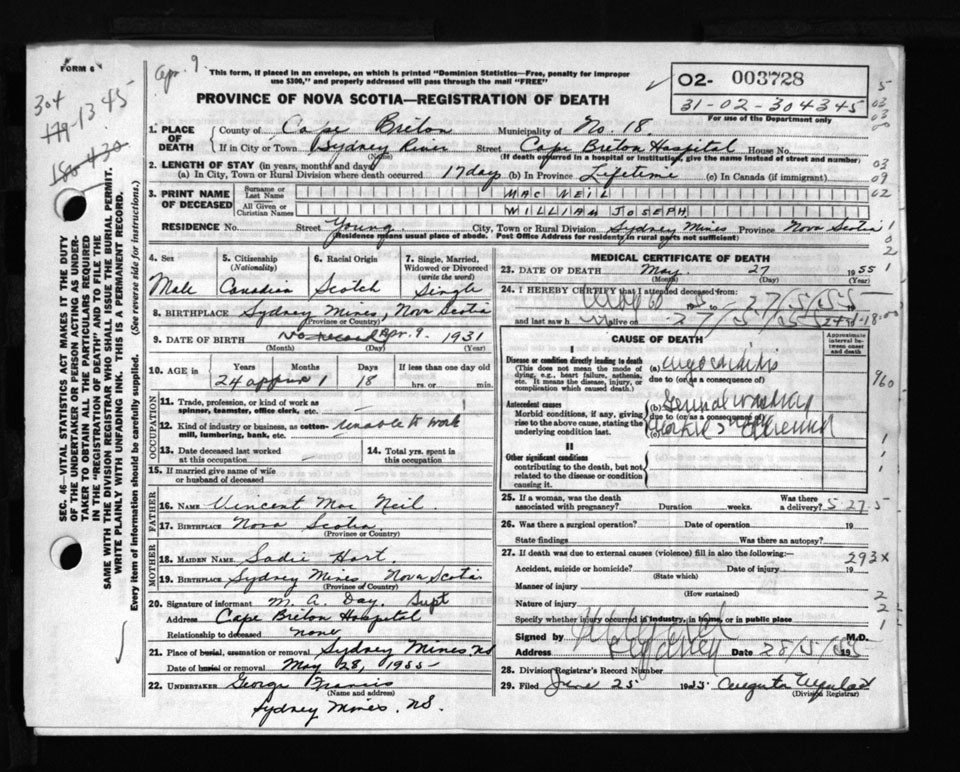 FORM 6
Apr. 9.
This form, if placed in an envelope, on which is printed "Dominion Statistics—Free, penalty for improper
use $300," and properly addressed will pass through the mail "FREE"
02- 003728
31-02-304345
For use of the Department only
PROVINCE OF NOVA SCOTIA—REGISTRATION OF DEATH
304
13 45
SEC. 46—VITAL STATISTICS ACT MAKES IT THE DUTY
OF THE UNDERTAKER OR PERSON ACTING AS UNDER-
TAKER TO OBTAIN ALL THE PARTICULARS REQUIRED
IN THE "REGISTRATION OF DEATH" AND TO FILE THE
SAME WITH THE DIVISION REGISTRAR WHO SHALL ISSUE THE BURIAL PERMIT.
WRITE PLAINLY WITH UNFADING INK. THIS IS A PERMANENT RECORD.
Every item of information should be carefully supplied. (See reverse side for instructions.)
1. PLACE OF DEATH
County of Cape Breton Municipality of No. 18.
If in City or Town Sydney River Street Cape Breton Hospital House No.
(Name) (If death occurred in a hospital or institution, give the name instead of street and number)
2. LENGTH OF STAY (in years, months and days)
(a) In City, Town or Rural Division where death occurred 17 day (b) In Province Lifetime (c) In Canada (if immigrant)
3. PRINT NAME OF DECEASED
Surname or Last Name MAC NEIL
All Given or Christian Names WILLIAM JOSEPH
RESIDENCE No. Street Young City, Town or Rural Division Sydney Mines Province Nova Scotia
(Residence means usual place of abode. Post Office Address for residents in rural parts not sufficient)
4. Sex Male
5. Citizenship (Nationality) Canadian
6. Racial Origin Scotch
7. Single, Married, Widowed or Divorced (write the word) Single
8. BIRTHPLACE Sydney Mines, Nova Scotia
(Province or Country)
9. DATE OF BIRTH No record Apr. 9. 1931
(Month) (Day) (Year)
10. AGE Years Months Days If less than one day old
24 approx 1 18 hrs. or min.
OCCUPATION
11. Trade, profession, or kind of work as
spinner, teamster, office clerk, etc.
12. Kind of industry or business, as cotton-
mill, lumbering, bank, etc. Unable to work
13. Date deceased last worked
at this occupation
14. Total yrs. spent in
this occupation
15. If married give name of wife
or husband of deceased
FATHER
16. NAME Vincent Mac Neil
17. BIRTHPLACE Nova Scotia
(Province or Country)
MOTHER
18. MAIDEN NAME Sadie Hart
19. BIRTHPLACE Sydney Mines Nova Scotia
(Province of Country)
20. Signature of informant M. A. Day. Supt
Address Cape Breton Hospital
Relationship to deceased none
21. Place of burial, cremation or removal Sydney Mines, NS
Date of burial or removal May 28, 1955
22. UNDERTAKER George Francis
(Name and address)
Sydney Mines. N.S.
MEDICAL CERTIFICATE OF DEATH
23. DATE OF DEATH May 27 1955
(Month) (Day) (Year)
24. I HEREBY CERTIFY that I attended deceased from:
27/5/55
and last saw h alive on 27/5/55
CAUSE OF DEATH
Approximate
interval between
onset and death
I
Disease or condition directly leading to death
(This does not mean the mode of
dying, e.g., heart failure, asthenia,
etc. It means the disease, injury, or
complication which caused death.)
(a) Myocarditis
due to (or as a consequence of)
Antecedent causes
Morbid conditions, if any, giving
rise to the above cause, stating the
underlying condition last.
(b)
due to (or as a consequence of)
(c)
II
Other significant conditions
contributing to the death, but not
related to the disease or condition
causing it.
25. If a woman, was the death
associated with pregnancy? Duration weeks. Was there
a delivery? 5-27-5
26. Was there a surgical operation? Date of operation 19
State findings Was there an autopsy?
27. If death was due to external causes (violence) fill in also the following:— 293x
Accident, suicide or homicide? Date of injury 19
(State which)
Manner of injury
(How sustained)
Nature of injury
Specify whether injury occurred in industry, in home, or in public place
Signed by M.D.
Address Sydney Date 28/5/55 19
28. Division Registrar's Record Number
29. Filed June 25 1955 Augusta
(Division Registrar)
960